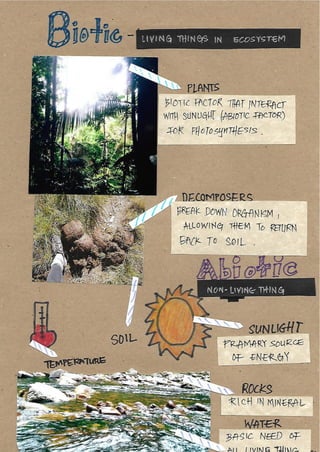 Biotic -
LIVING THINGS IN ECOSYSTEM
PLANTS
BIOTIC FACTOR THAT INTERACT
WITH SUNLIGHT (ABIOTIC FACTOR)
FOR PHOTOSYNTHESIS.
DECOMPOSERS
BREAK DOWN ORGANISM,
ALLOWING THEM TO RETURN
BACK TO SOIL.
Abiotic
NON-LIVING THING
SOIL
SUNLIGHT
PRAMARY SOURCE
OF ENERGY
TEMPERATURE
ROCKS
RICH IN MINERAL
WATER
BASIC NEED OF
ALL LIVING THING